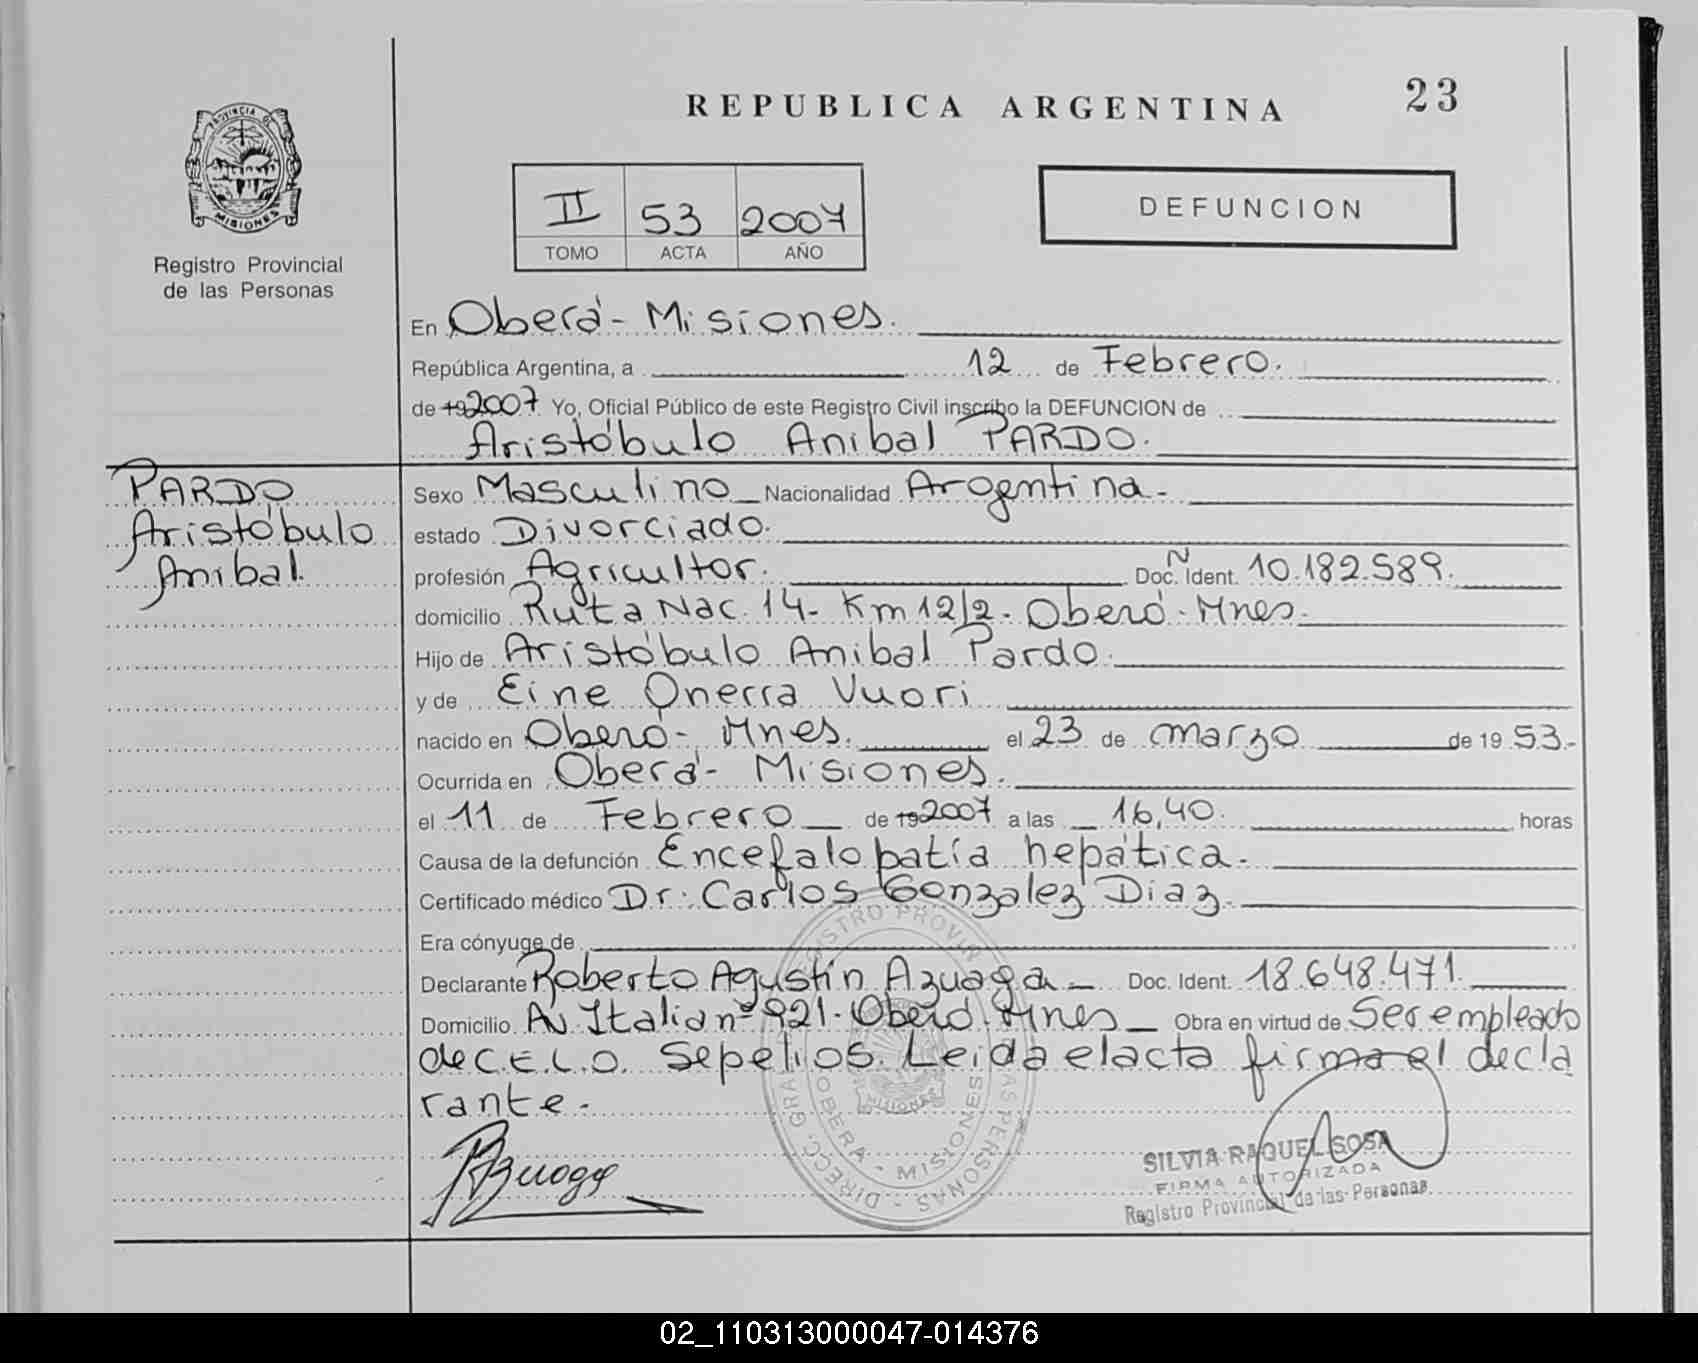 REPUBLICA ARGENTINA
23
PROVINCIA DE
MISIONES
Registro Provincial
de las Personas
II 53 2007
TOMO ACTA AÑO
DEFUNCION
En Oberá - Misiones.
República Argentina, a 12 de Febrero.
de 19 2007. Yo, Oficial Público de este Registro Civil inscribo la DEFUNCION de
Aristóbulo Anibal PARDO.
PARDO
Aristóbulo
Anibal.
Sexo Masculino Nacionalidad Argentina-
estado Divorciado.
profesión Agricultor. Doc. N Ident. 10.182.589.
domicilio Ruta Nac. 14- Km 12/2- Oberá- Mnes.
Hijo de Aristóbulo Anibal Pardo.
y de Eine Onerra Vuori
nacido en Oberá-, Mnes. el 23 de marzo de 19 53.-
Ocurrida en Oberá- Misiones.
el 11 de Febrero de 19 2007 a las 16,40. horas
Causa de la defunción Encefalopatía hepática.
Certificado médico Dr: Carlos Gonzalez Diaz.
Era cónyuge de
Declarante Roberto Agustín Azuaga Doc. Ident. 18.648.471.
Domicilio Av Italia nº 921. Oberá. Mnes Obra en virtud de Ser empleado
de C.E.L.O. Sepelios. Leida el acta firma el decla
rante.-
OBERA - MISIONES
SILVIA RAQUEL SOSA
FIRMA AUTORIZADA
Registro Provincial de las Personas
02_110313000047-014376